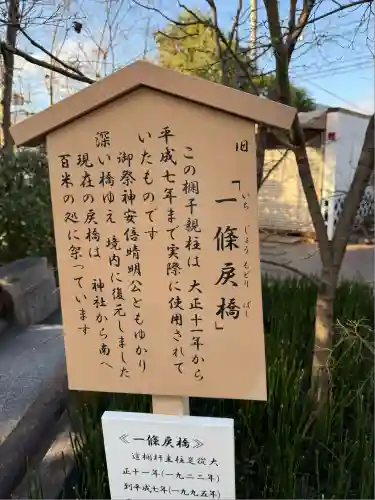 旧「一條戻橋」
いちじょうもどりばし
この欄干親柱は 大正十一年から
平成七年まで実際に使用されて
いたものです
御祭神安倍晴明公ともゆかり
深い橋ゆえ 境内に復元しました
現在の戻橋は 神社から南へ
百米の処に架っています
《一條戻橋》
這欄杆主柱是從大
正十一年(一九二二年)
到平成七年(一九九五年